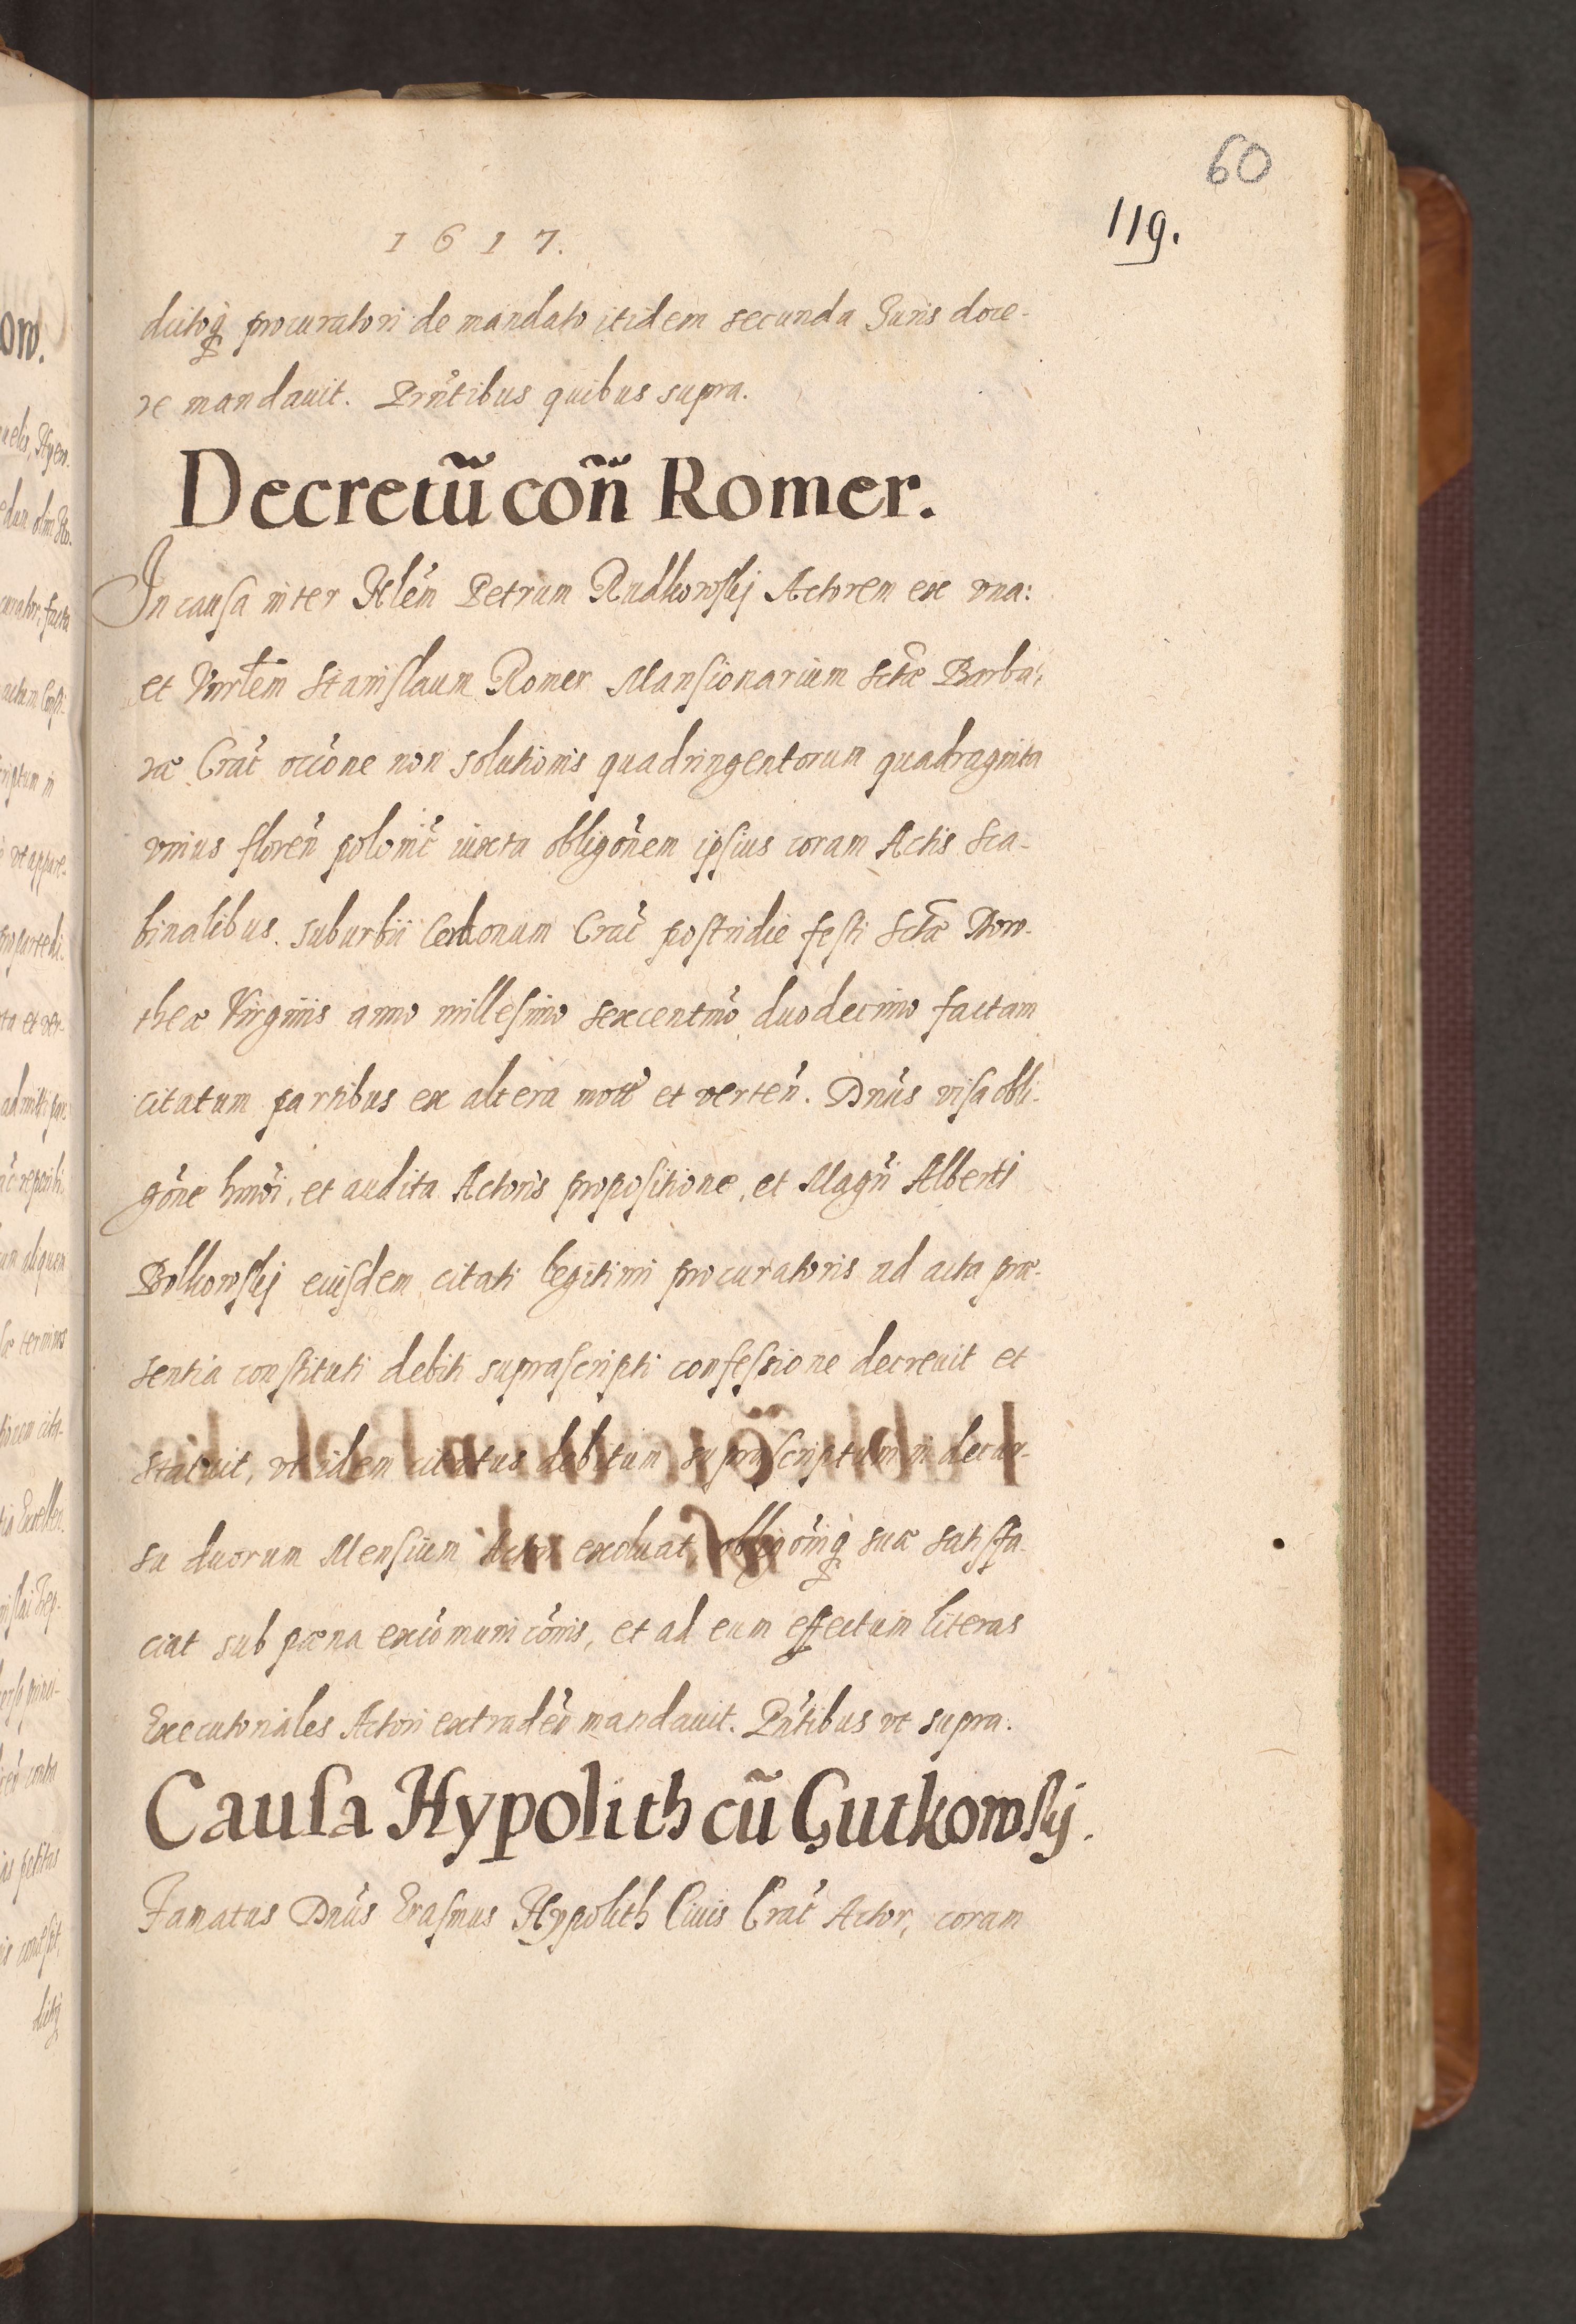 60
119.
1617.
dictoq̃ procuratori de mandato itidem secunda Juris doce-
re mandauit. Prñtibus quibus supra.
Decretũ coñ Romer.
In causa inter Hlem Petrum Rudkowskj Actorem ex vna:
et Stanislaum Romer Mansionarium Sctæ Barba-
ræ Crac̃ occõne non solutionis quadringentorum quadraginta
vnius floreñ polonic̃ iuxta obligõnem ipsius coram Actis Sca-
binalibus suburbii Cerdonum Crac̃ postridie festi Sctæ Doro-
theæ Virginis anno millesimo sexcentmo duodecimo factam
citatum partibus ex altera mot̃ et verteñ. Dnus visa obli-
gõne hmõi, et audita Actoris propositione, et Magñ Alberti
Bolkowskj eiusdem citati legitimi procuratoris ad acta præ-
sentia constituti debiti suprascripti confessione decreuit et
statuit, vt idem citatus debitum suprascriptum in decur-
su duorum Mensium Actori exoluat, obligõniq̃ suæ satisfa-
ciat sub pœna excõmunicõnis, et ad eum effectum literas
Executoriales Actori extradere mandauit. Pñtibus vt supra.
Causa Hypolith cũ Gutkowskj.
Famatus Dnus Erasmus Hypolith Ciuis Crac̃ Actor, coram